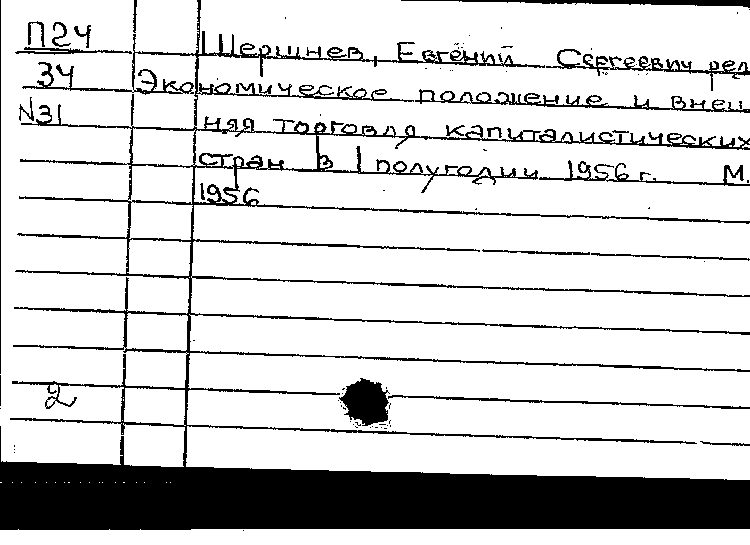 П24 Шершнев, Евгений Сергеевич ред
34 Экономическое положение и внеш
N31 няя торговля капиталистических
стран в I полугодии 1956 г. М.
1956
2